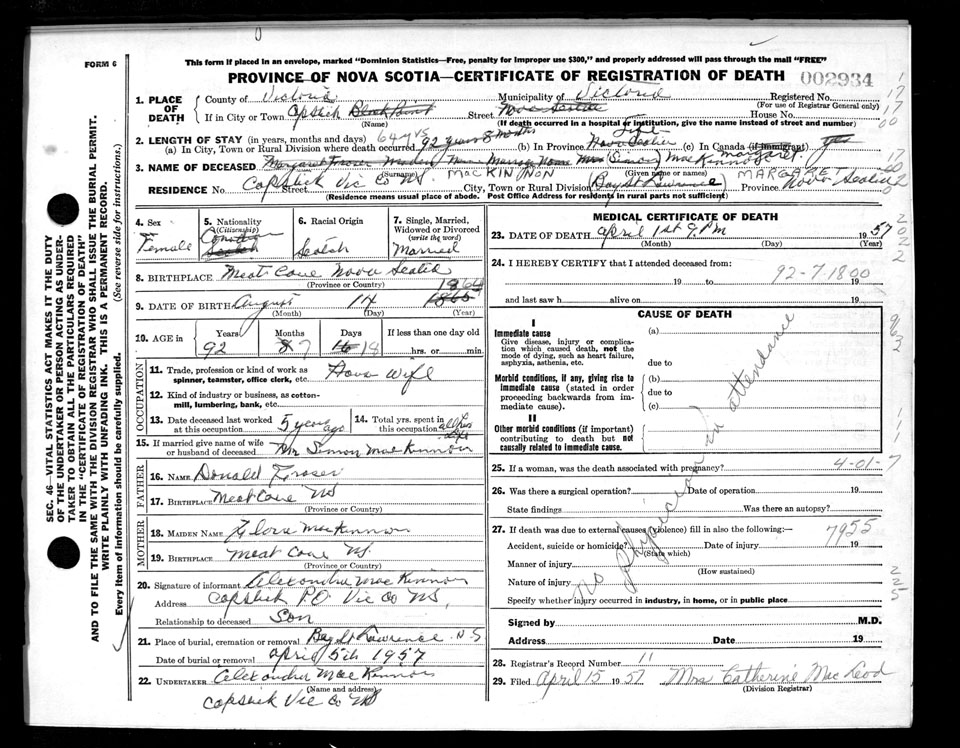 FORM 6
This form if placed in an envelope, marked "Dominion Statistics—Free, penalty for improper use $300," and properly addressed will pass through the mail "FREE"
PROVINCE OF NOVA SCOTIA—CERTIFICATE OF REGISTRATION OF DEATH 002934
1. PLACE OF DEATH
County of Victoria Municipality of Victoria Registered No.
(For use of Registrar General only)
If in City or Town Capstick Black Point Street Nova Scotia House No.
(Name) (If death occurred in a hospital or institution, give the name instead of street and number)
2. LENGTH OF STAY (in years, months and days) 64 yrs Life
(a) In City, Town or Rural Division where death occurred 92 years 8 months (b) In Province Nova Scotia (c) In Canada (if immigrant) yes
3. NAME OF DECEASED Margaret Fraser Mac Kinnon Margaret
(Surname) MACKINNON (Given name or names) MARGARET
RESIDENCE No. Capstick Vic Co NS Street City, Town or Rural Division (Bay St Lawrence) Province Nova Scotia
(Residence means usual place of abode. Post Office Address for residents in rural parts not sufficient)
4. Sex Female
5. Nationality (Citizenship) Canadian Scotch
6. Racial Origin Scotch
7. Single, Married, Widowed or Divorced (write the word) Married
8. BIRTHPLACE Meat Cove Nova Scotia
(Province or Country)
9. DATE OF BIRTH August 14 1864 1865
(Month) (Day) (Year)
10. AGE in Years Months Days If less than one day old
92 8 7 16 18 hrs. or min.
OCCUPATION
11. Trade, profession or kind of work as spinner, teamster, office clerk, etc. House Wife
12. Kind of industry or business, as cotton-mill, lumbering, bank, etc.
13. Date deceased last worked at this occupation 5 years ago
14. Total yrs. spent in this occupation all her life
15. If married give name of wife or husband of deceased Mr Simon MacKinnon
FATHER
16. NAME Donald Fraser
17. BIRTHPLACE Meat Cove NS
(Province or Country)
MOTHER
18. MAIDEN NAME Flora MacKinnon
19. BIRTHPLACE Meat Cove NS.
(Province or Country)
20. Signature of informant Alexander Mac Kinnon
Address Capstick PO Vic Co NS,
Relationship to deceased Son
21. Place of burial, cremation or removal Bay St Lawrence N.S
Date of burial or removal April 5th 1957
22. UNDERTAKER Alexander Mac Kinnon
(Name and address)
Capstick Vic Co NS
MEDICAL CERTIFICATE OF DEATH
23. DATE OF DEATH April 1st 9. PM 1957
(Month) (Day) (Year)
24. I HEREBY CERTIFY that I attended deceased from:
92-7-1800
19 to 19
and last saw h alive on 19
CAUSE OF DEATH
I
Immediate cause
Give disease, injury or complication which caused death, not the mode of dying, such as heart failure, asphyxia, asthenia, etc.
(a)
due to
Morbid conditions, if any, giving rise to immediate cause (stated in order proceeding backwards from immediate cause).
(b)
due to
(c)
II
Other morbid conditions (if important) contributing to death but not causally related to immediate cause.
no physician in attendance
25. If a woman, was the death associated with pregnancy? 4-01-7
26. Was there a surgical operation? Date of operation 19
State findings Was there an autopsy?
27. If death was due to external causes (violence) fill in also the following:— 7955
Accident, suicide or homicide? Date of injury 19
(State which)
Manner of injury
(How sustained)
Nature of injury
Specify whether injury occurred in industry, in home, or in public place
Signed by M.D.
Address Date 19
28. Registrar's Record Number 11
29. Filed April 15 1957 Mrs Catherine Mac Leod
(Division Registrar)
SEC. 46—VITAL STATISTICS ACT MAKES IT THE DUTY
OF THE UNDERTAKER OR PERSON ACTING AS UNDERTAKER TO OBTAIN ALL THE PARTICULARS REQUIRED
IN THE "CERTIFICATE OF REGISTRATION OF DEATH"
AND TO FILE THE SAME WITH THE DIVISION REGISTRAR WHO SHALL ISSUE THE BURIAL PERMIT.
WRITE PLAINLY WITH UNFADING INK. THIS IS A PERMANENT RECORD.
Every item of information should be carefully supplied. (See reverse side for instructions.)